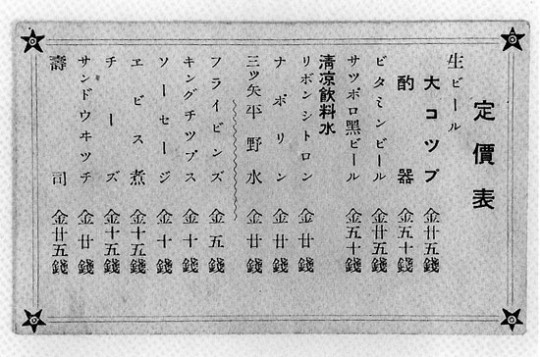 定價表
生ビール
大コツプ 金廿五錢
酌器 金五十錢
ビタミンビール 金廿五錢
サツポロ黑ビール 金五十錢
淸凉飮料水
リボンシトロン 金廿錢
ナポリン 金廿錢
三ツ矢平野水 金廿錢
フライビンズ 金五錢
キングチツプス 金十錢
ソーセージ 金十錢
ヱビス煮 金十五錢
チーズ 金十五錢
サンドウヰツチ 金廿錢
壽司 金廿五錢